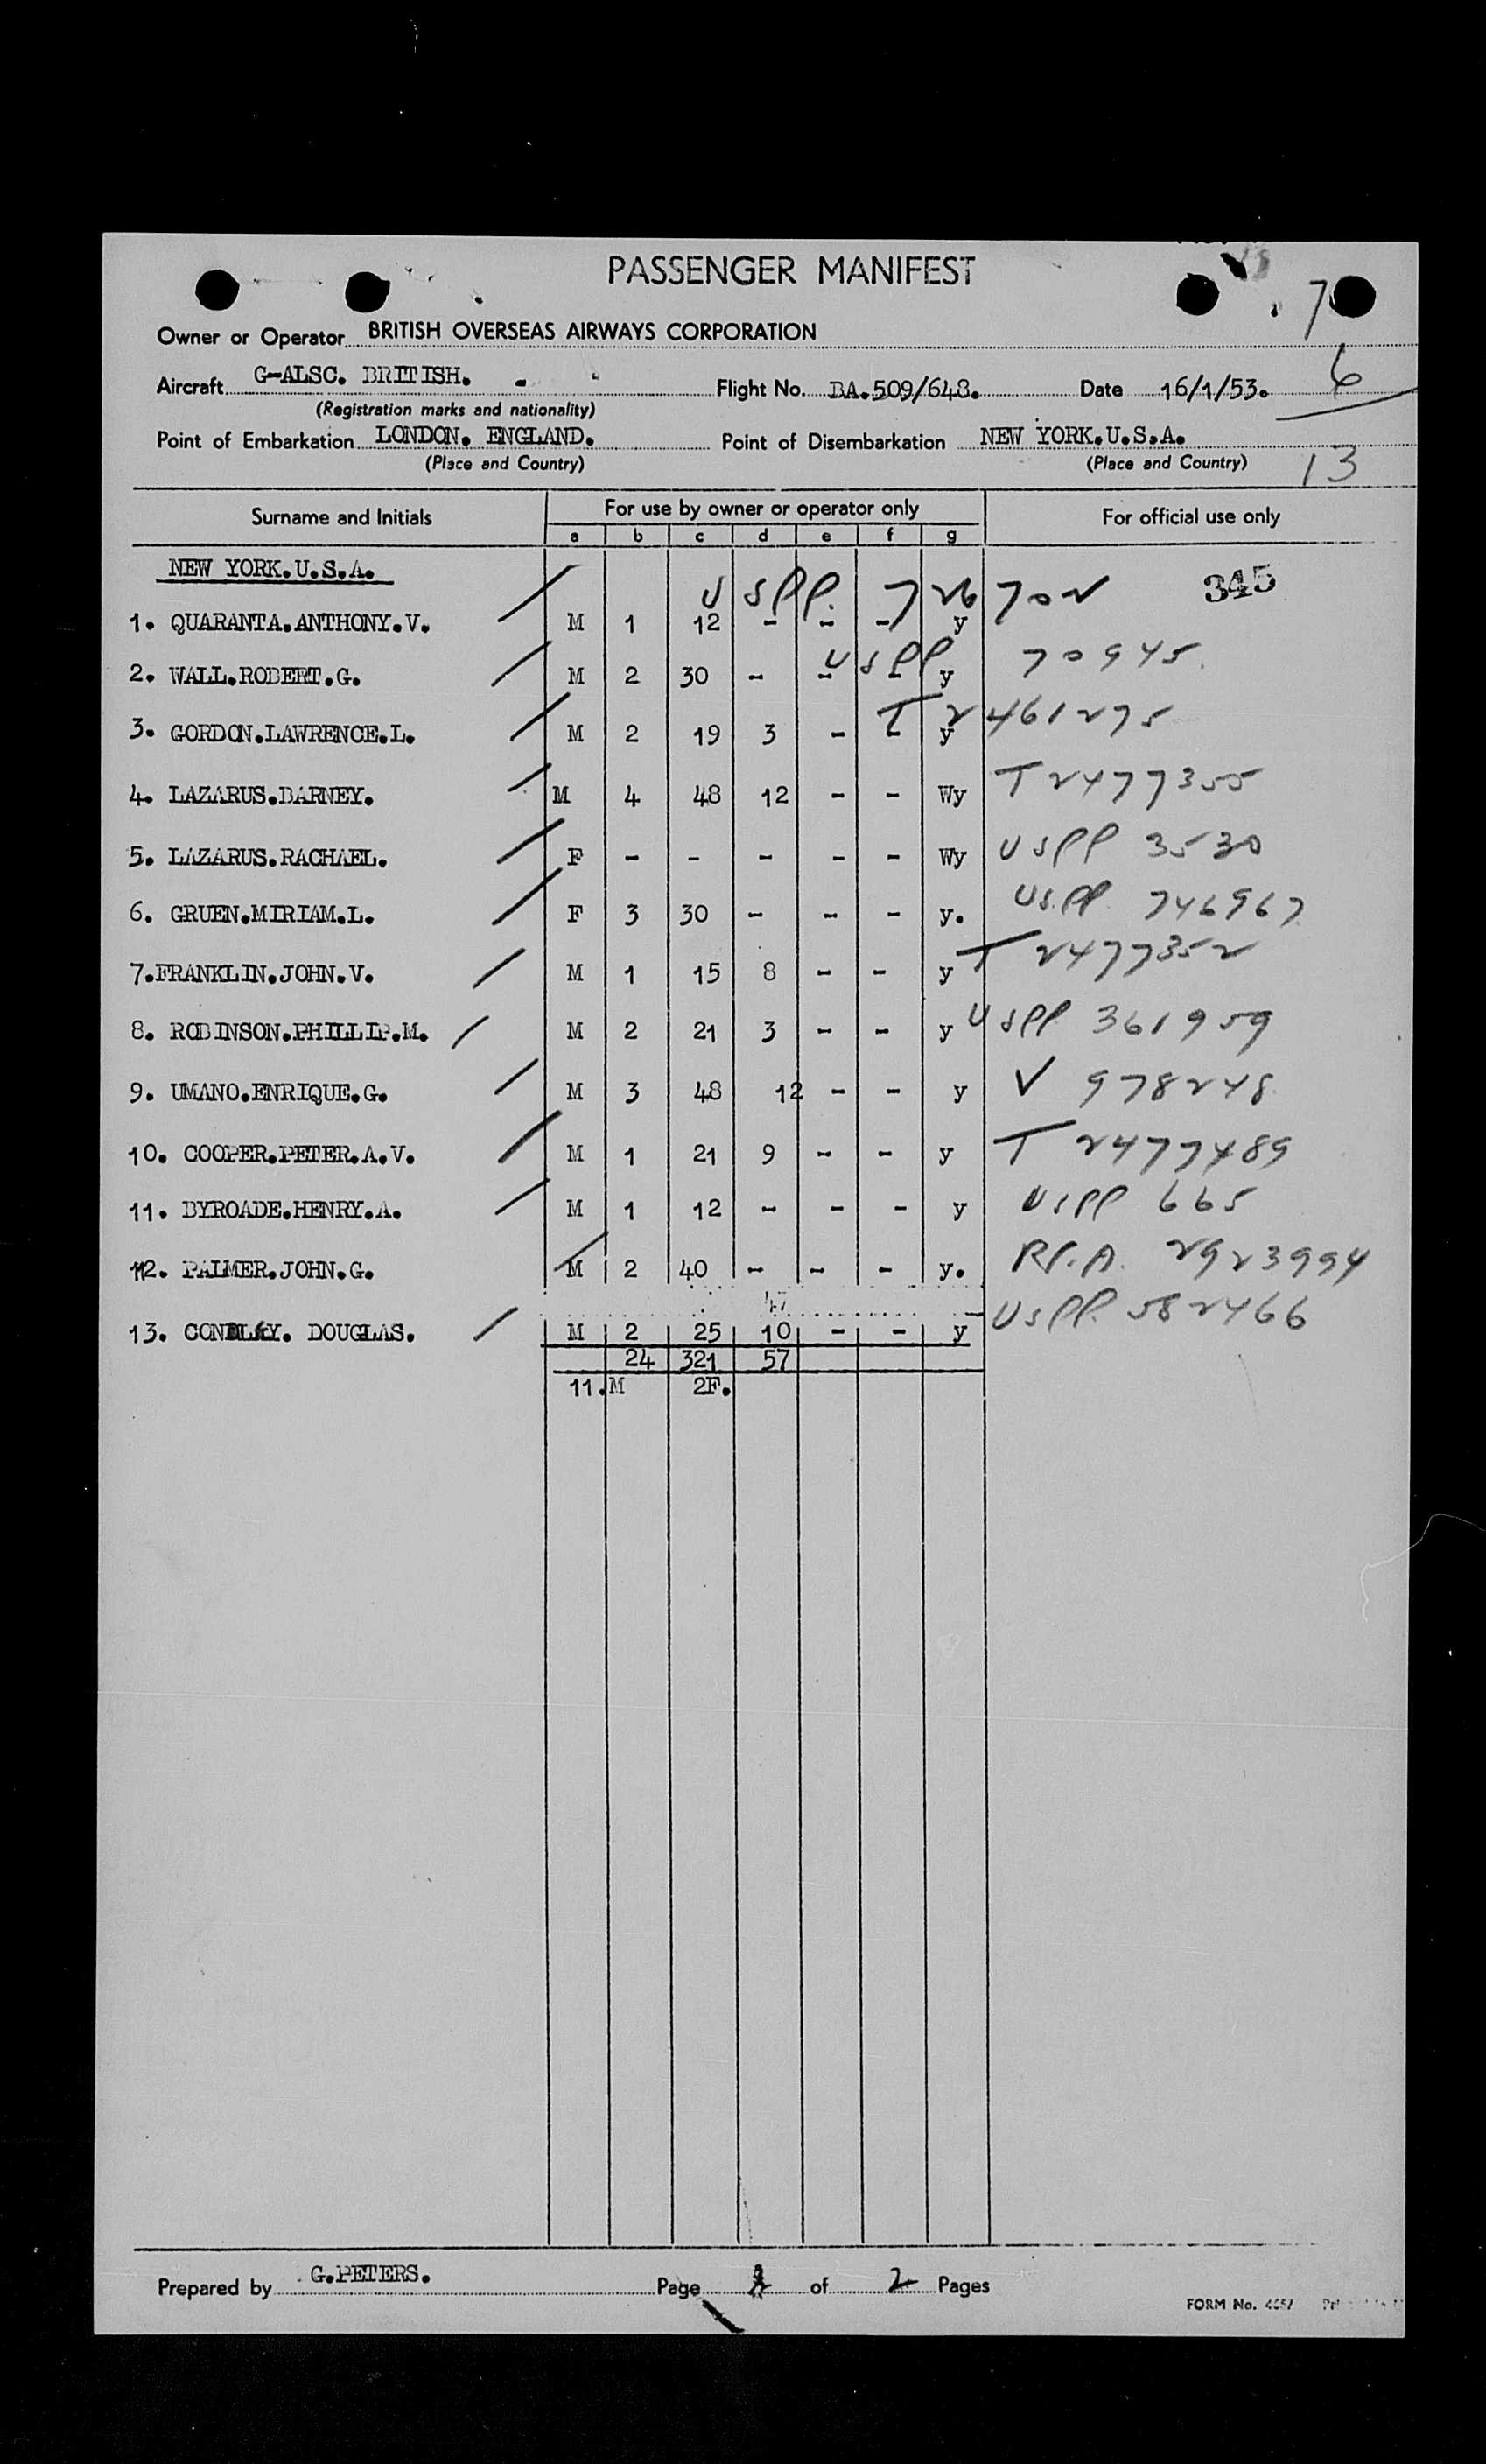 PASSENGER MANIFEST
7
Owner or Operator BRITISH OVERSEAS AIRWAYS CORPORATION
6
Aircraft G-ALSC. BRITISH. Flight No. BA.509/648. Date 16/1/53.
(Registration marks and nationality)
Point of Embarkation LONDON. ENGLAND. Point of Disembarkation NEW YORK.U.S.A.
(Place and Country) (Place and Country) 13
Surname and Initials For use by owner or operator only For official use only
a b c d e f g
NEW YORK.U.S.A. 345
USPP. 726702
1. QUARANTA.ANTHONY.V. M 1 12 - - - y
USPP 70945
2. WALL.ROBERT.G. M 2 30 - - - y
T 2461275
3. GORDON.LAWRENCE.L. M 2 19 3 - - y
4. LAZARUS.BARNEY. M 4 48 12 - - Wy T 2477355
5. LAZARUS.RACHAEL. F - - - - - Wy USPP 3530
6. GRUEN.MIRIAM.L. F 3 30 - - - y. US.PP. 746967
7.FRANKLIN.JOHN.V. M 1 15 8 - - y T 2477352
8. ROBINSON.PHILLIP.M. M 2 21 3 - - y USPP 361959
9. UMANO.ENRIQUE.G. M 3 48 12 - - y V 978248
10. COOPER.PETER.A.V. M 1 21 9 - - y T 2477489
11. BYROADE.HENRY.A. M 1 12 - - - y USPP 665
12. PALMER.JOHN.G. M 2 40 - - - y. RP.A. 2923994
47
13. DOUGLAS. M 2 25 10 - - y USPP. 582466
24 321 57
11.M 2F.
Prepared by G.PETERS. Page of 2 Pages
FORM No.